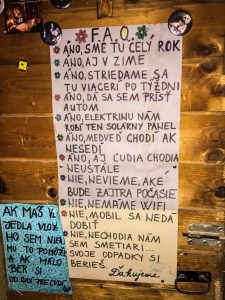 F.A.Q.
ÁNO, SME TU CELÝ ROK
ÁNO, AJ V ZIME
ÁNO, STRIEDAME SA
TU VIACERÍ PO TÝŽDNI
ÁNO, DÁ SA SEM PRÍSŤ
AUTOM
ÁNO, ELEKTRINU NÁM
ROBÍ TEN SOLÁRNY PANEL
ÁNO, MEDVEĎ CHODÍ AK
NESEDÍ
ÁNO, AJ ĽUDIA CHODIA
NEUSTÁLE
NIE, NEVIEME, AKÉ
BUDE ZAJTRA POČASIE
NIE, NEMÁME WIFI
NIE, MOBIL SA NEDÁ
DOBIŤ
NIE, NECHODIA NÁM
SEM SMETIARI...
SVOJE ODPADKY SI
BERIEŠ.
Ďakujeme
AK MÁŠ
JEDLA VLOŽ
HO SEM. NIEK
MU TO POMÔŽE
A AK MÁLO
BER SI